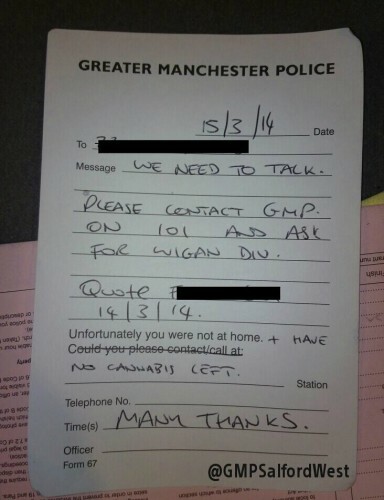 GREATER MANCHESTER POLICE
15/3/14 Date
To
Message WE NEED TO TALK.
PLEASE CONTACT GMP.
ON 101 AND ASK
FOR WIGAN DIV.
Quote
14/3/14.
Unfortunately you were not at home. + HAVE
Could you please contact/call at:
NO CANNABIS LEFT.
Station
Telephone No.
Time(s) MANY THANKS.
Officer
Form 67
@GMPSalfordWest